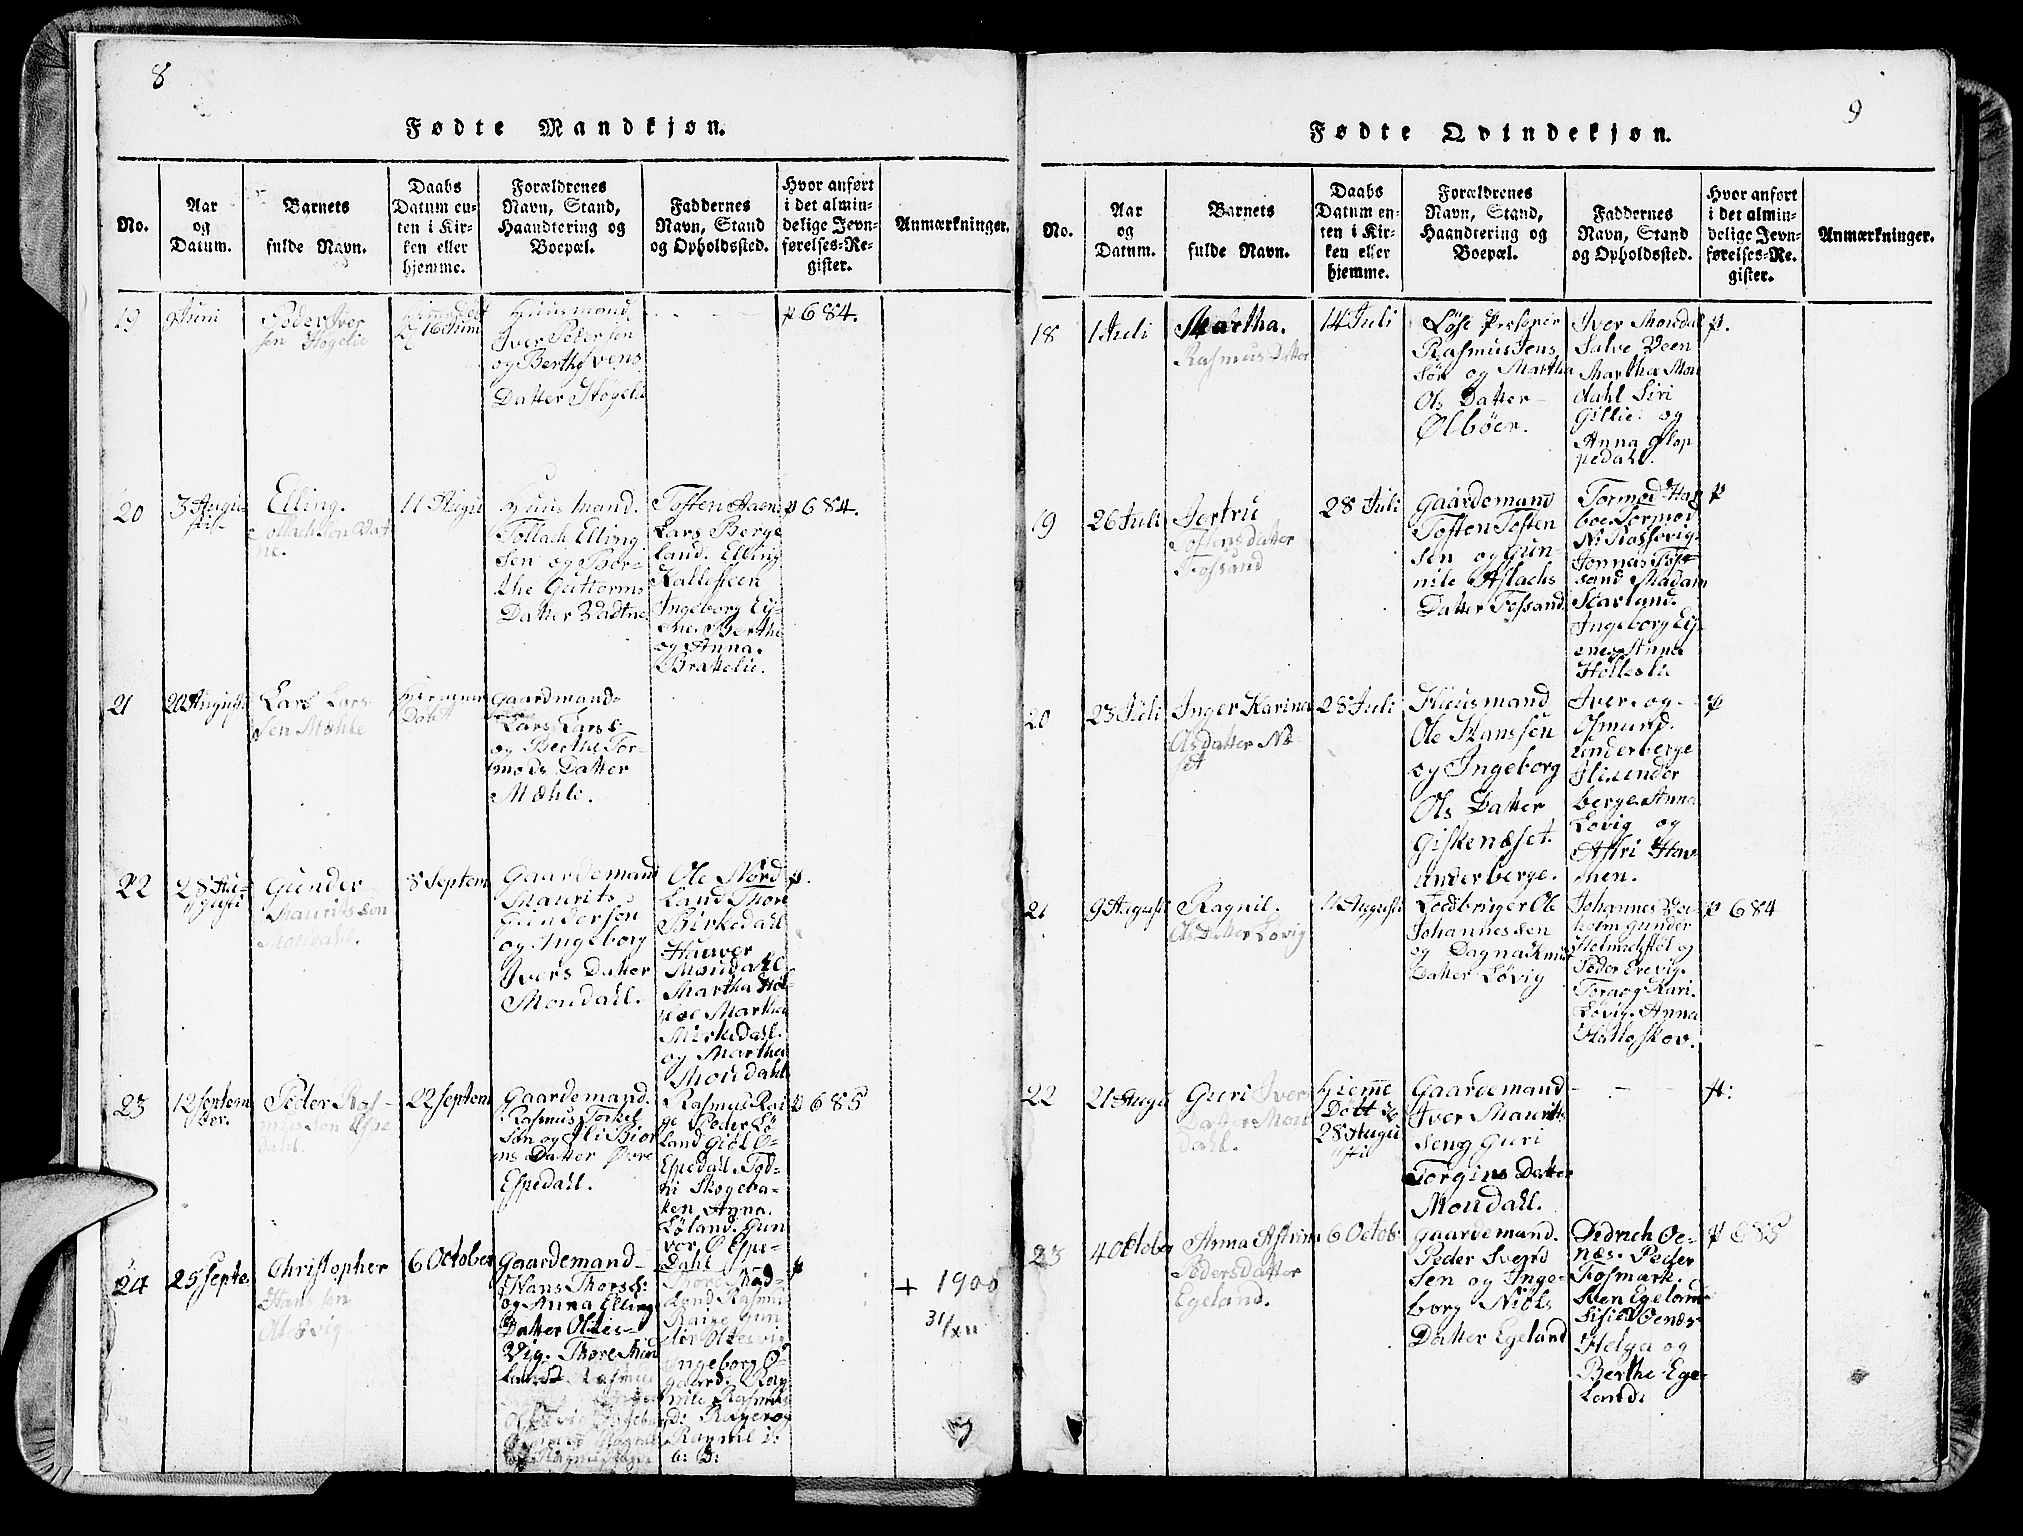 8
Fødte Mandkjøn.
No.
Aar
og
Datum.
Barnets
fulde Navn.
Daabs
Datum en-
ten i Kir-
ken eller
hjemme.
Forældrenes
Navn, Stand,
Haandtering og
Boepæl.
Faddernes
Navn, Stand
og Opholdssted.
Hvor anført
i det almin-
delige Jevn-
førelses-Re-
gister.
Anmærkninger.
19
Juni
Peder Iver
sen Høgelie
16 Juni
Huusmand
Iver Peder sen
og Berthe Svens
Datter Høgeli
p 684.
20
3 Augu
Elling.
Tollach Son Vat
ne.
11 Augu
Huus Mand.
Tollach Elling
sen og Ber-
the Guttorms
Datter Vadtne
Tosten Haen
Lars Berge
land. Elling
Kalleskeen
Ingeborg Ey-
ne. Berthe
og Anna.
Brattelie.
p 684.
21
20 August
Lars Lars
sen Mæhle
Hiemme
Døbt
Gaardmand
Lars Lars
og Berthe Tor-
mods Datter
Mæhle.
22
28 Au-
gusti
Gunder
Maurits son
Mondahl.
8 Septem
Gaardemand
Maurits
Gunderson
og Ingeborg
Ivers Datter
Mondall.
Ole Nord
Land Thore
Birkedall
Haaver
Mondahl
Martha Hol
Martha
Mirkedahl.
og Martha
Mondahl
p.
23
12 Septem
ber.
Peder Ras-
mus son Espe
dahl.
22 Septem
Gaardemand.
Rasmus Torkel
Son og Eli Bior
ns Datter Øvre
Espedall.
Rasmus Rai
ge Peder Lø
land Giøl Ø-
Espedall. Tod-
ni Skogeba-
ken Anna.
Løland. Gun
vor Ø Espe-
Dahl
p 685
24
25 Septe
Christopher
Hans son
Oltesvig
6 October
Gaardemand
Hans Thors S:
og Anna Elling
Datter Oltes-
vig. Thore Mad
land Rasmu
Thore Mad-
Lond Rasmu
Raige Gun
der Oltesvig
Ingeborg Ø-
gaard. Rag
nile Rasmus
d: Rageog
Ragnil
p
+ 1900
31/XII
9
Fødte Qvindekjøn.
No.
Aar
og
Datum.
Barnets
fulde Navn.
Daabs
Datum en-
ten i Kir-
ken eller
hjemme.
Forældrenes
Navn, Stand,
Haandtering og
Boepæl.
Faddernes
Navn, Stand
og Opholdssted.
Hvor anført
i det almin-
delige Jevn-
førelses-Re-
gister.
Anmærkninger.
18
1 Juli
Martha.
Rasmus Datter
14 Juli
Løse Personer
Rasmus Jens
Søn og Martha
Ols Datter
Ølbøen.
Iver Mondal
Salve Veen
Martha Mon
dahl Siri
Gillie: og
Anna Flop
pedahl.
p.
19
26 Juli
Jertru
Tostens datter
Fossand
28 Juli
Gaardemand
Tosten Tosten
sen og Gun-
nile Aslachs
Datter Fossand.
Tormod Hap
boe Tormod
N: Kossevig
Jonnas Foss-
sand Madam
Starland.
Ingeborg Ey-
enes Anna
Hollesli
p
20
23 Juli
Inger Karina
Ols datter Næ
set
28 Juli
Huusmand
Ole Hanssen
og Ingeborg
Ols Datter
Giskenæset.
Underberge.
Iver og
Osmund.
Underberge
Eli under
berge. Anna
Lovig og
Astri Hav-
nen.
p
21
9 Augusti
Ragnil.
Ols datter Lovig
11 Augusti
Leedbringer Ole
Johannessen
og Dagna Knus
Datter Løvig
Johannes Ve
holm Gunder
Helmichstøl og
Peder Erevig.
Tora og Kari.
Løvig. Anna
Hatloskov.
p 684
22
21 Augu
Guri Ivers
Datter Mon
dahl.
Hiemme
Døbt
28 Augu
sti
Gaardemand
Iver Maurits
sen og Guri
Torgins Datter
Mondall.
p:
23
4 October
Anna Astrina
Peders datter
Egeland.
6 Octobr
Gaardemand.
Peder Svend
sen og Inge-
borg Niels
Datter Egeland
Didrich Oe-
næs. Peder
Fosmark.
Sven Egeland
Sisilia Oenæs
Helga og
Berthe Ege-
Land.
p 685